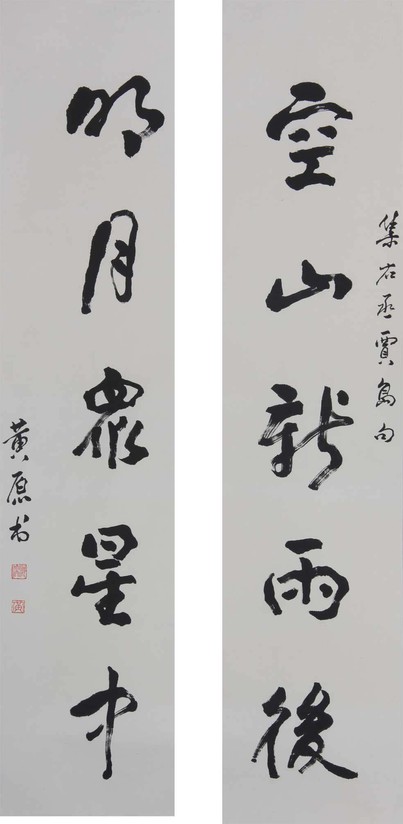 集右丞賈島句
空山新雨後
明月衆星中
黄原书